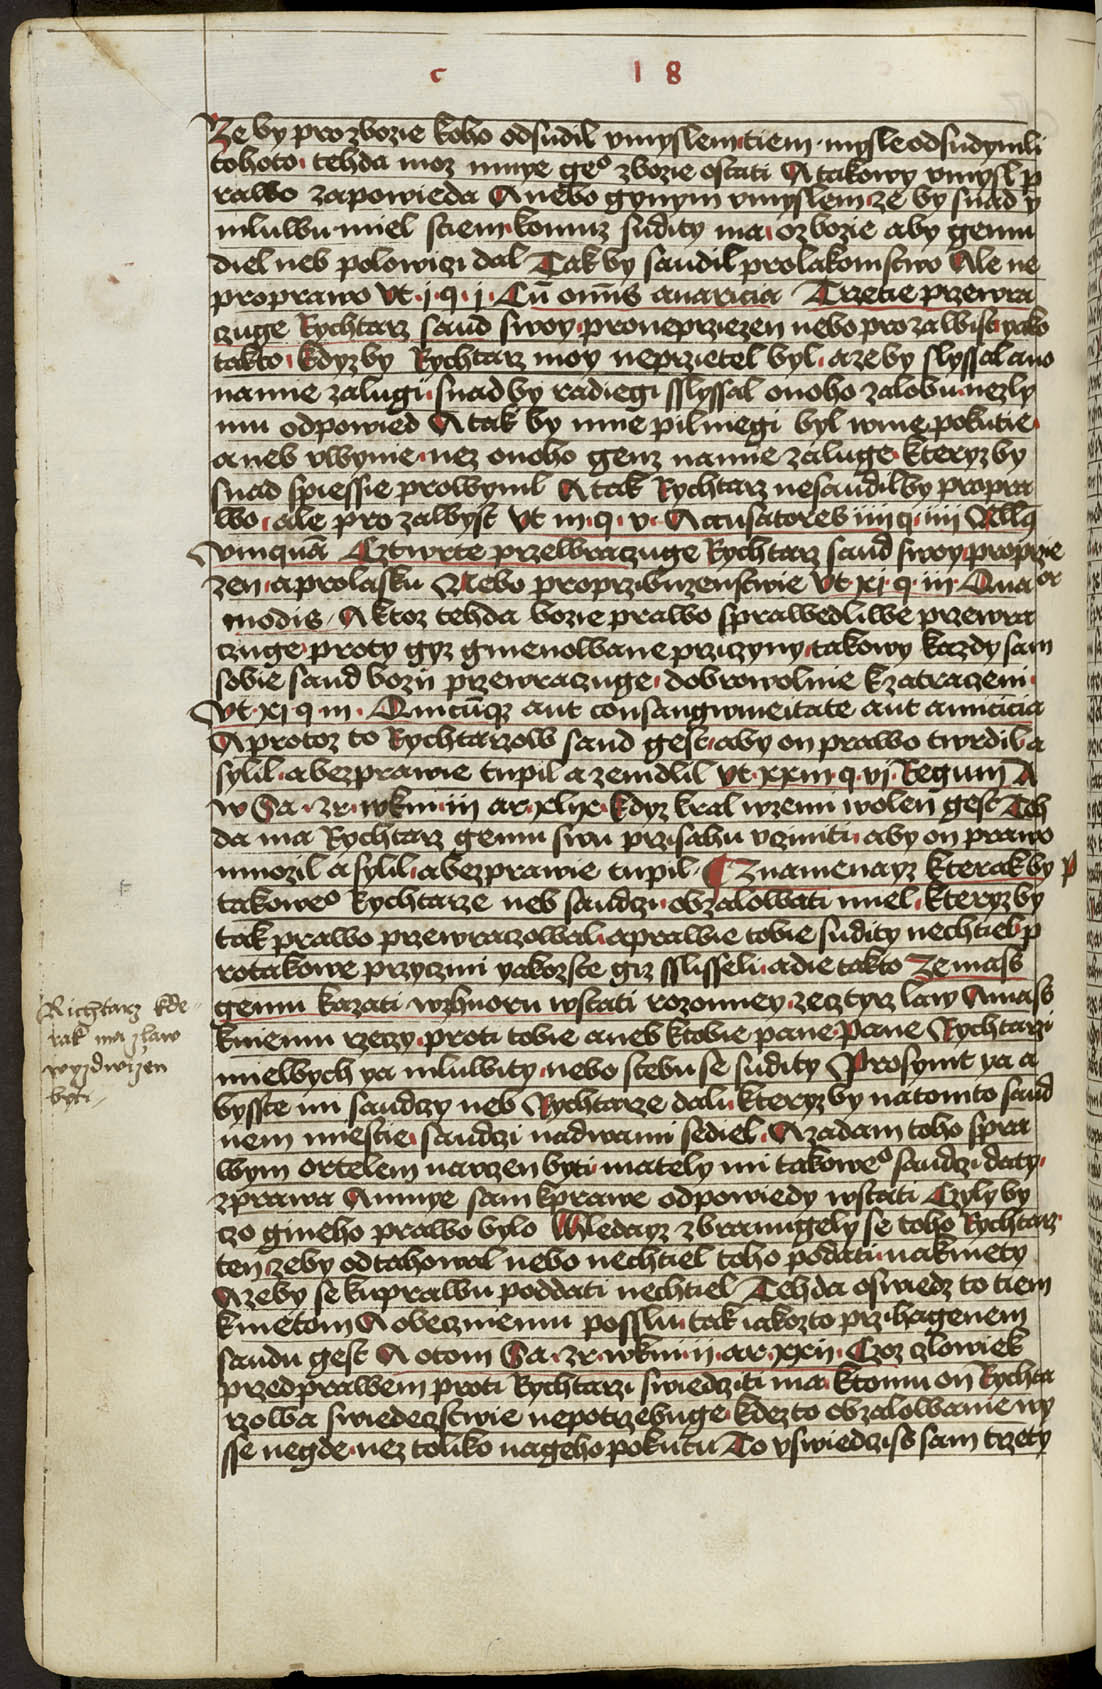 c 18
Ze by pro zbozie koho odsudil vmyslem tiem mysle odsudymli
tohoto tehda moz mnye geº zbozie ostati A takowy vmysl p
rawo zapowieda A nebo gynym vmyslem ze by snad y
mluwu miel stiem komuz sudity ma o zbozie aby gemu
diel neb polowizi dal Tak by saudil pro lakomstwo Ale ne
pro prawo Vt j q j Cū om̄is auaricia Trzetie przewra
czuge Rychtarz saud swoy pro neprziezen nebo pro zawist yako
takto kdyz by Rychtarz moy neprzietel byl a ze by slyssal ano
na mie zalugi snad by radiegi sslyssal onoho zalobu nezly
mu odpowied A tak by mne pilniegi byl wme pokutie
a neb vwynie nez onoho genz na mie zaluge kteryz by
snad spiessie prowynil A tak Rychtarz nesaudil by pro pra
wo ale pro zawyst Vt iii q v Accusatores iiii q iiii Nllꝗ
Vmquā Cztwrte przewraczuge Rychtarz saud swoy pro przie
zen a pro lasku Nebo pro przibuzenstwie Vt xj q iii Quatuor
modis A ktoz tehda bozie prawo sprawedliwe przewra
czuge proty gyz gmenowane przyczyny takowy kazdy sam
sobie saud bozij przewraczuge dobrowolnie k zatraczeni
Vt xj q iii Quicūqz aut consangwineitate aut amicicia
A protoz to Rychtarzow saud gest aby on prawo twrdil a
sylil a bezprawie tupil a zemdlil Vt xxiii q vj Regum A
w Sa zr wkni iii ar xliiij kdyz kral wzemi wolen gest Teh
da ma Rychtarz gemu swu przisahu vcziniti aby on prawo
mnozil a sylil a bezprawie tupil Znamenayz kterak by p
takoweº Rychtarze neb saudczi obzalowati miel kteryz by
tak prawo przewraczowal a prawie tobie sudity nechtiel p
rotakowe przyczini yakozste giz sslisseli a die takto Ze mass
gemu kazati wzhuoru wstati rozomiey ze cztyrz law A mass
kniemu rzeczy proti tobie a neb ktobie pane Pane Rychtarzi
mielbych ya mluwity nebo stebu se sudity Prosymt ya a
bysste mi saudczy neb Rychtarze dali kteryz by na tomto saud
nem miestie saudczi nad wami sediel A zadam toho spra
wym ortelem narzen byti mately mi takoweº saudczi daty
z prawa A mnye sam kprawe odpowiedy wstati Czyly by
czo gineho prawo bylo Wledayz zbraniugely se toho Rychtarz
ten ze by odtahowal nebo nechtiel toho podati nakmety
A ze by se ku prawu poddati nechtiel Tehda oswiedz to tiem
kmetom A obecznemu posslu tak iakozto przi hagenem
saudu gest A o tom Sa zr wkni ii ar xxij Czoz czlowiek
przed prawem proti Rychtarzi swiedcziti ma ktomu on Rychta
rzowa swiedeczstwie nepotrzebuge kdezto obzalowanie wy
sse negde nez toliko na geho pokutu To vswiedcziss sam trzety
Richtarz kde
rak ma z law
wyzdwizen
byti